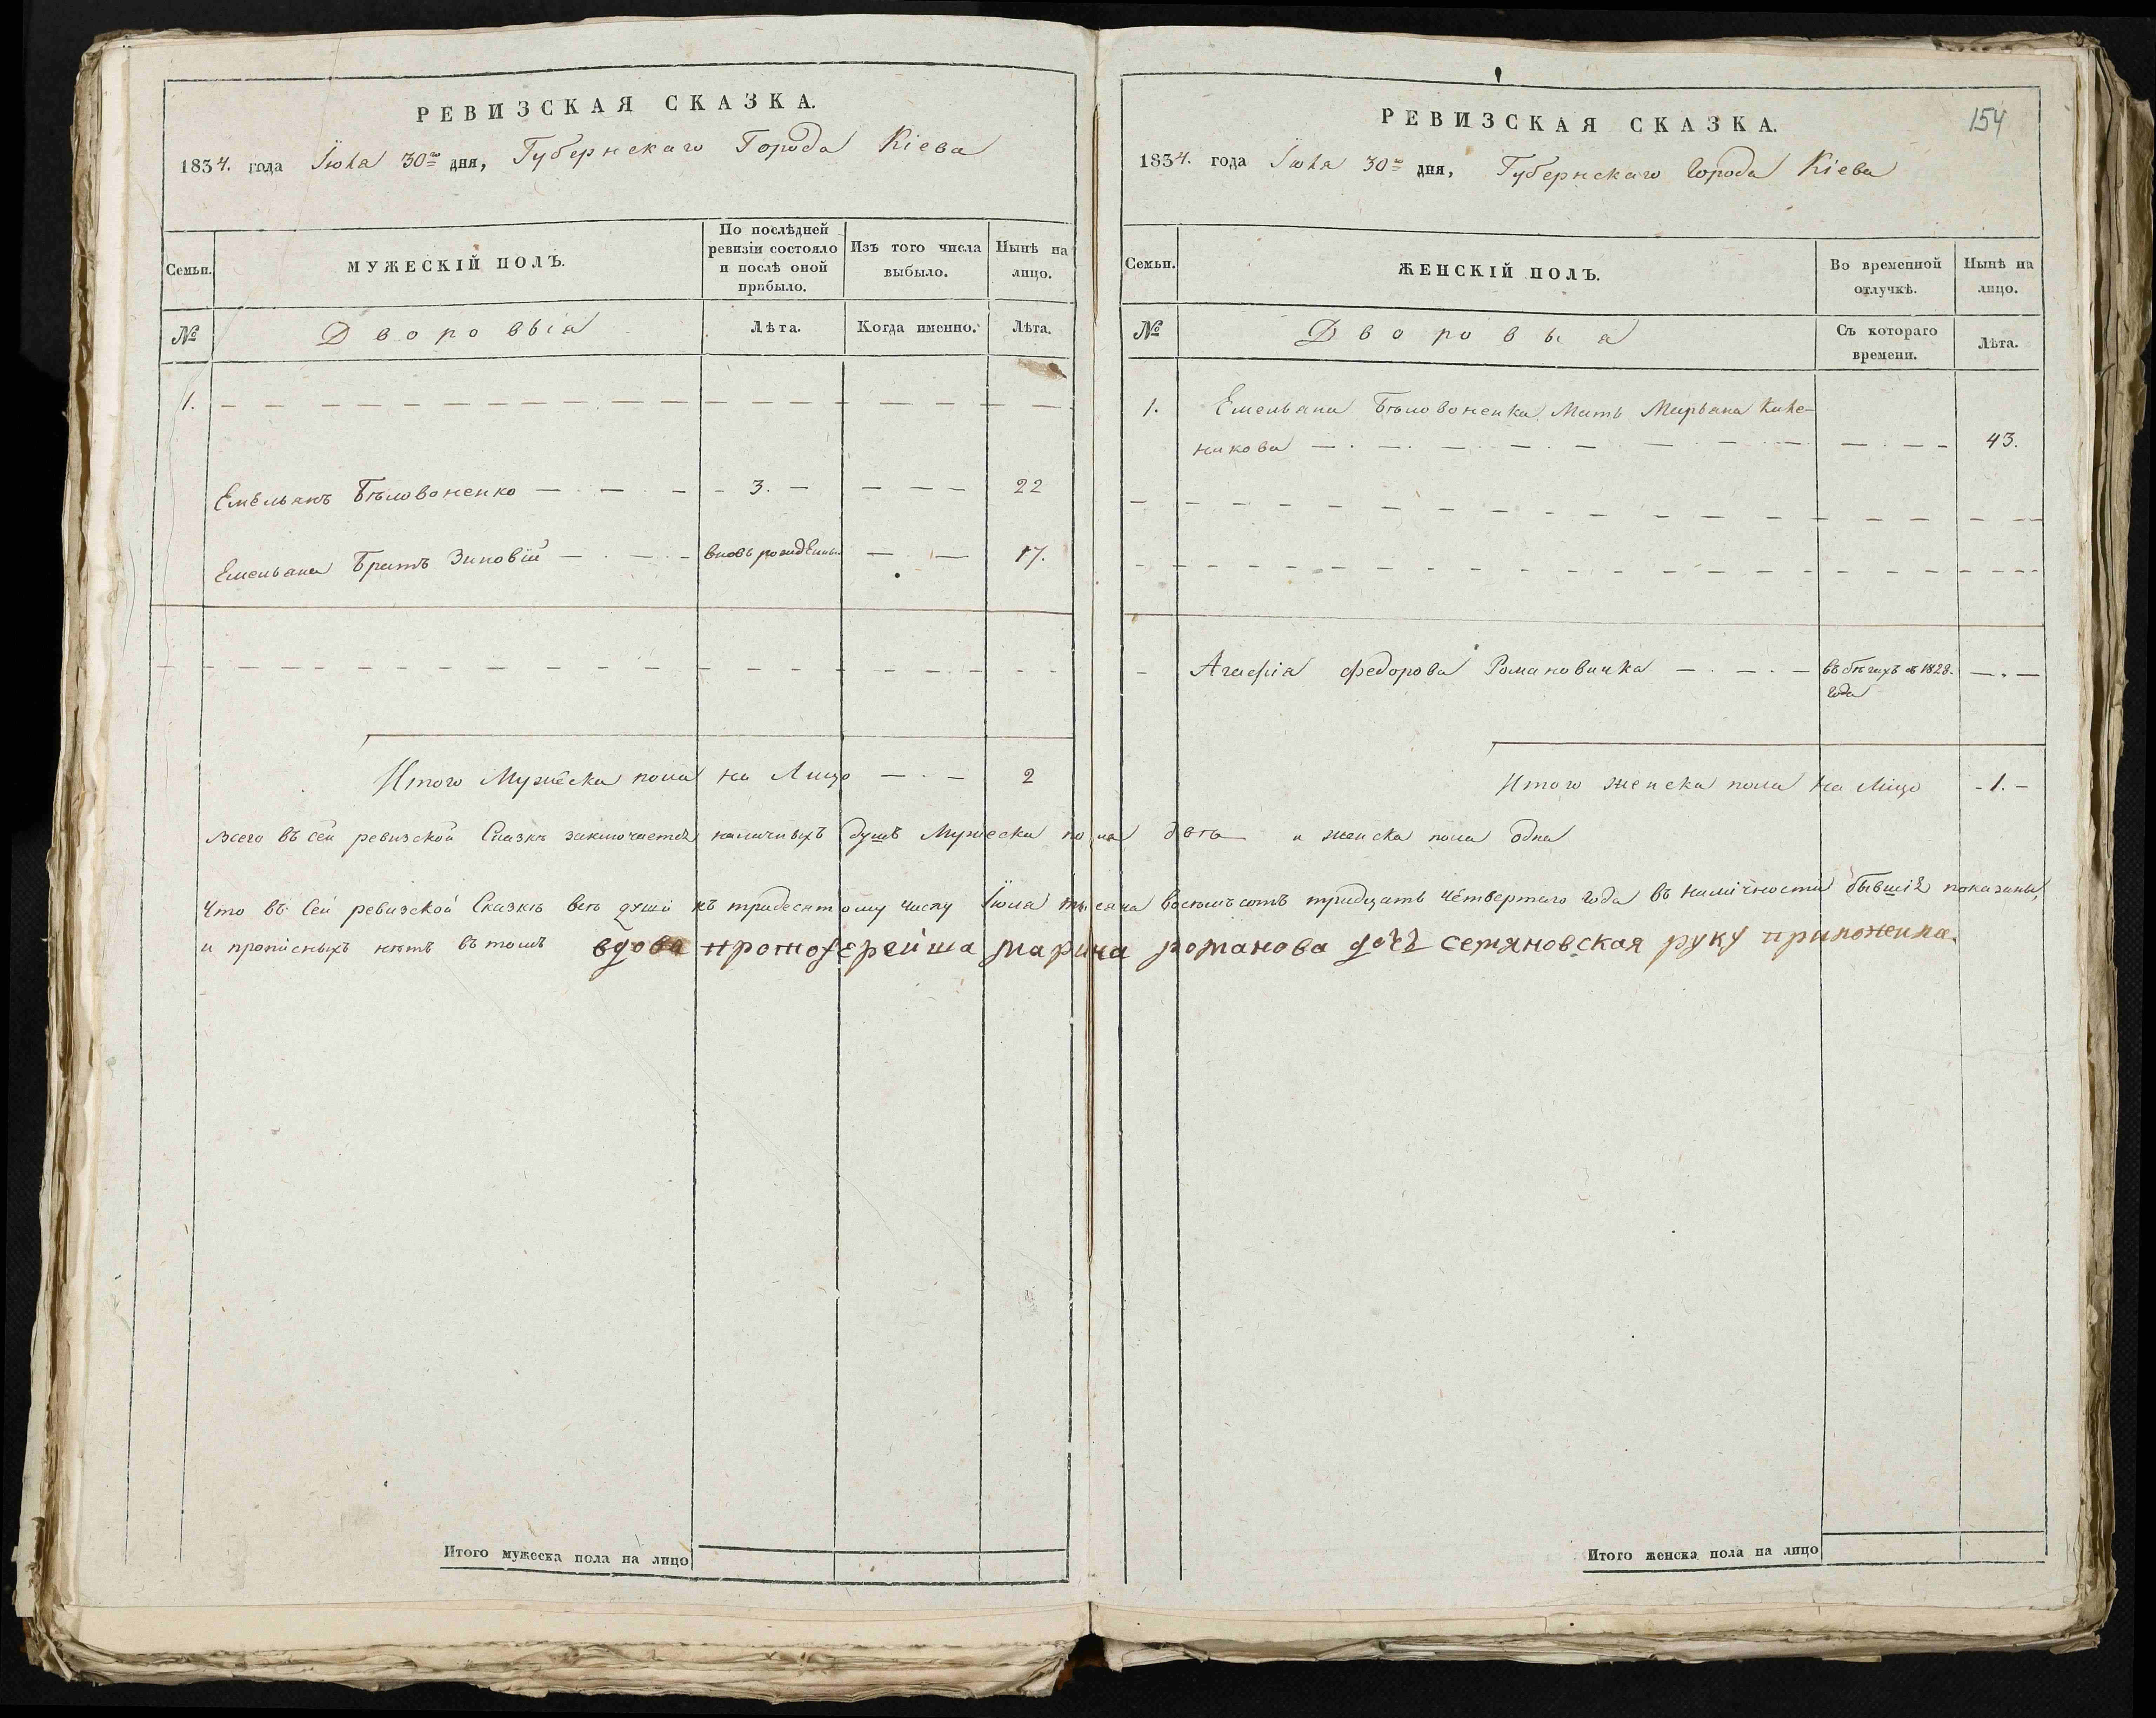 РЕВИЗСКАЯ СКАЗКА.
1834. года Іюля 30го дня, Губернскаго Города Кіева
Семьи.
МУЖЕСКІЙ ПОЛЪ.
По послѣдней
ревизіи состояло
и послѣ оной
прибыло.
Изъ того числа
выбыло.
Нынѣ на
лицо.
№
Дворовыя
Лѣта.
Когда именно.
Лѣта.
1.
Емельянъ Бѣловоненко 3. 22
Емельяна Братъ Зиновій вновь рожденны 17.
Итого Мужеска пола на Лицо 2
Итого мужеска пола на лицо
РЕВИЗСКАЯ СКАЗКА.
154
1834. года Іюля 30го дня, Губернскаго Города Кіева
Семьи.
ЖЕНСКІЙ ПОЛЪ.
Во временной
отлучкѣ.
Нынѣ на
лицо.
№
Дворовыя
Съ котораго
времени.
Лѣта.
1. Емельяна Бѣловоненка Мать Марьяна
никова 43.
Агафія Федорова Романовичка въ бѣгахъ съ 1828.
года
Итого женска пола на Лицо 1.
Всего въ сей ревизской Сказкѣ заключается наличныхъ душъ Мужеска пола двѣ и женска пола одна
Что въ Сей ревизской Сказкѣ всѣ души къ тридесятому числу Іюля тысяча восемьсотъ тридцать четвертаго года въ наличности бывшія показаны,
и прописныхъ нѣтъ въ томъ вдова протоіерейша марина романова дочь семяновская руку приложила.
Итого женска пола на лицо